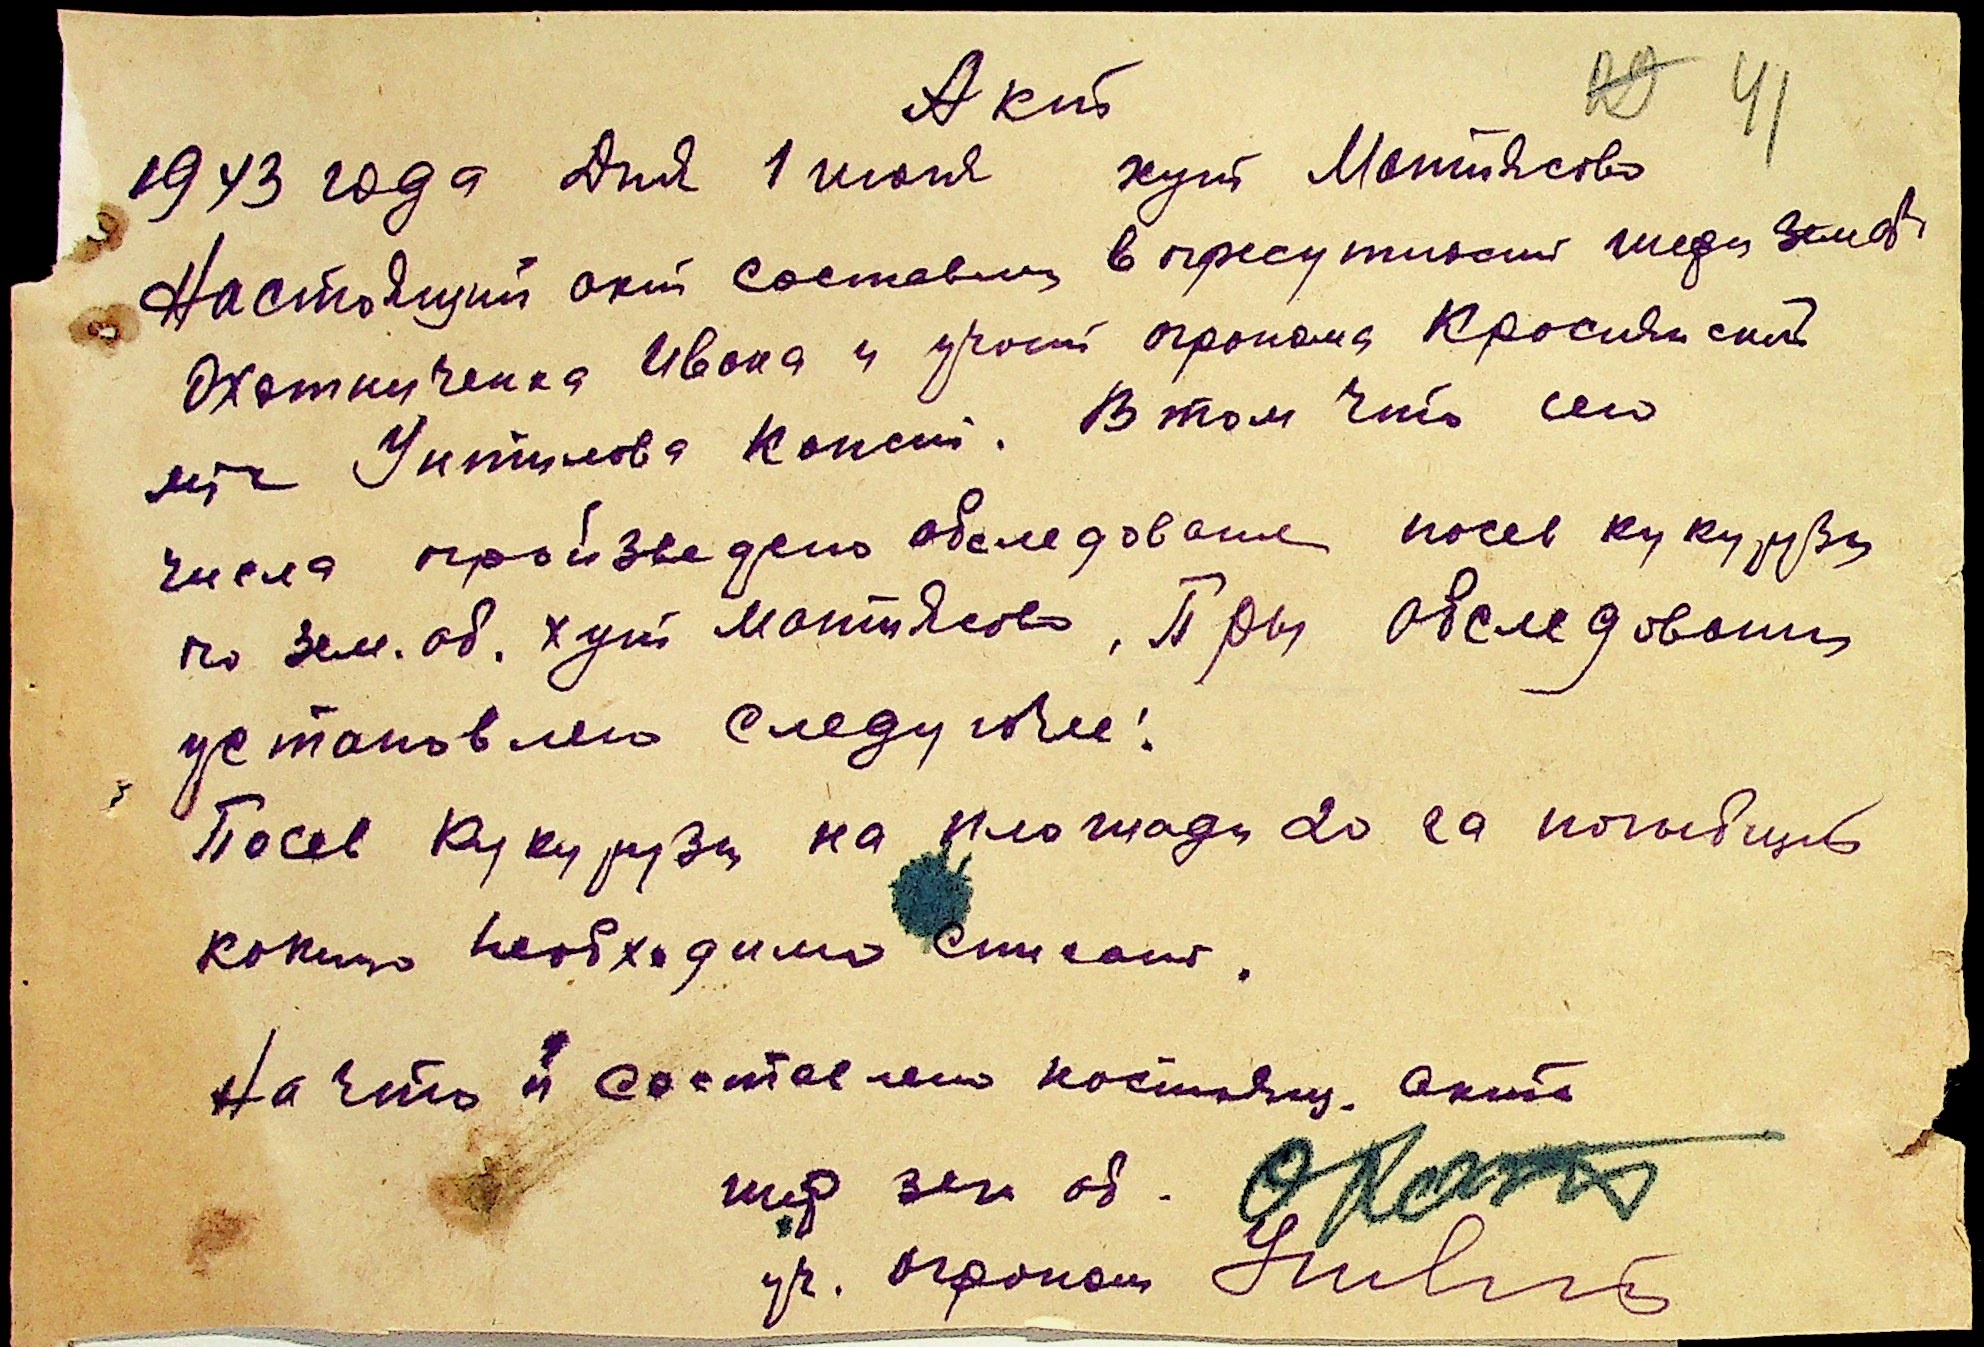 41
Акт
1943 года Дня 1 июня хут Матиясово
Настоящий акт составлен в присутствии шефа Земоб.
Охотниченка Ивана и участ агронома Красиянский
мтс Унтилова Конст. В том что сего
числа произведено обследование посев кукурузы
по зем. об. хут Матиясово, При обследовании
установлено следующее:
Посев кукурузы на площади 20 га погибший
необходимо списать.
На что и составлено настоящ. акта
шеф зем об.
уч. агроном